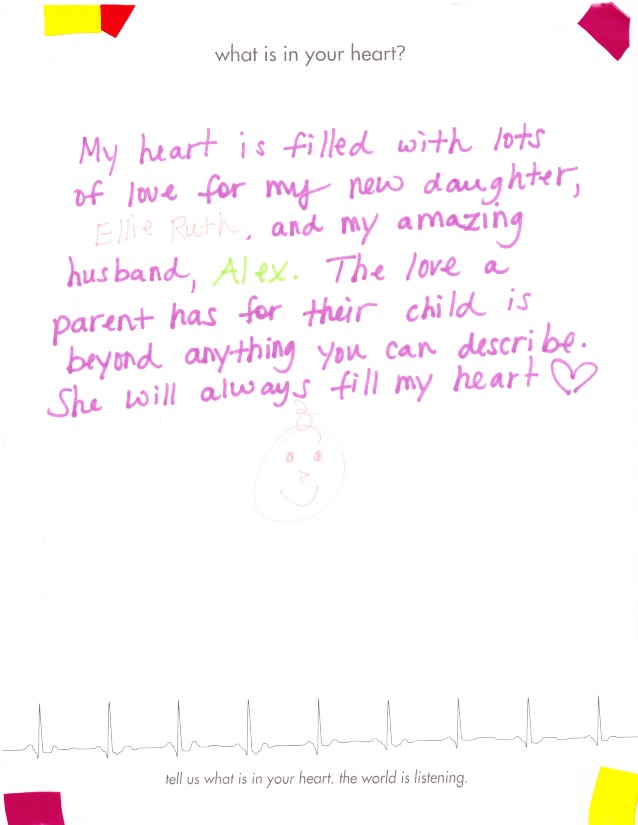 what is in your heart?
My heart is filled with lots
of love for my new daughter,
Ellie Ruth, and my amazing
husband, Alex. The love a
parent has for their child is
beyond anything you can describe.
She will always fill my heart ♡
tell us what is in your heart. the world is listening.